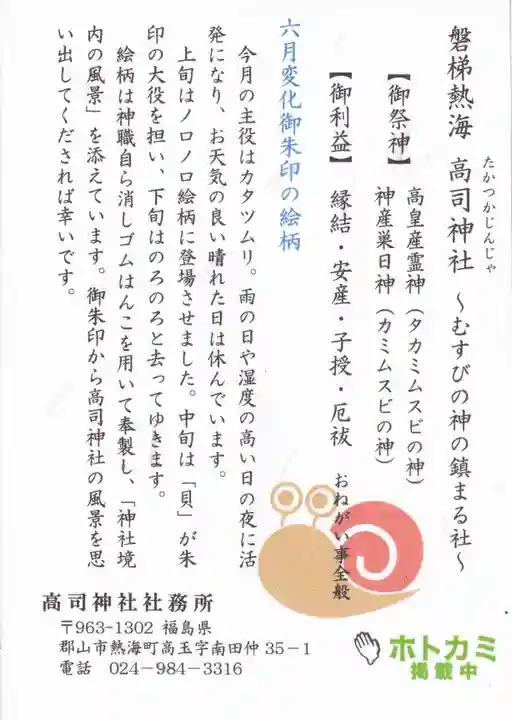 磐梯熱海 高司神社 ~むすびの神の鎮まる社~
たかつかじんじゃ
【御祭神】 高皇産霊神(タカミムスビの神)
神産巣日神(カミムスビの神)
【御利益】 縁結・安産・子授・厄祓 おねがい事全般
六月変化御朱印の絵柄
今月の主役はカタツムリ。雨の日や湿度の高い日の夜に活
発になり、お天気の良い晴れた日は休んでいます。
上旬はノロノロ絵柄に登場させました。中旬は「貝」が朱
印の大役を担い、下旬はのろのろと去ってゆきます。
絵柄は神職自ら消しゴムはんこを用いて奉製し、「神社境
内の風景」を添えています。御朱印から高司神社の風景を思
い出してくだされば幸いです。
高司神社社務所
〒963-1302 福島県
郡山市熱海町高玉字南田仲35-1
電話 024-984-3316
ホトカミ
掲載中